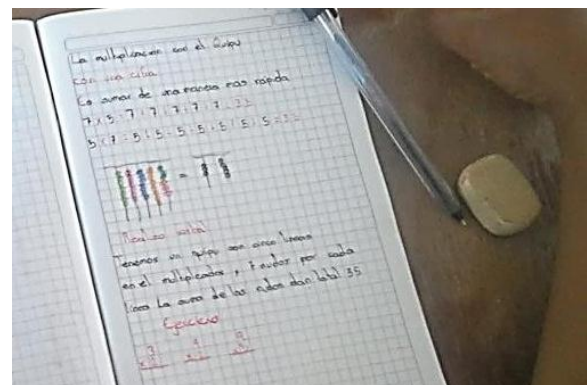 La multiplicacion con el Quipu
con una cifra
Es sumar de una manera mas rapida
7 x 5 = 7 + 7 + 7 + 7 + 7 = 35
5 x 7 = 5 + 5 + 5 + 5 + 5 + 5 + 5 = 35
=
Tenemos un quipu con cinco lineas
en el multiplicador y 7 nudos por cada
linea La suma de los nudos dan total 35
Ejercicio